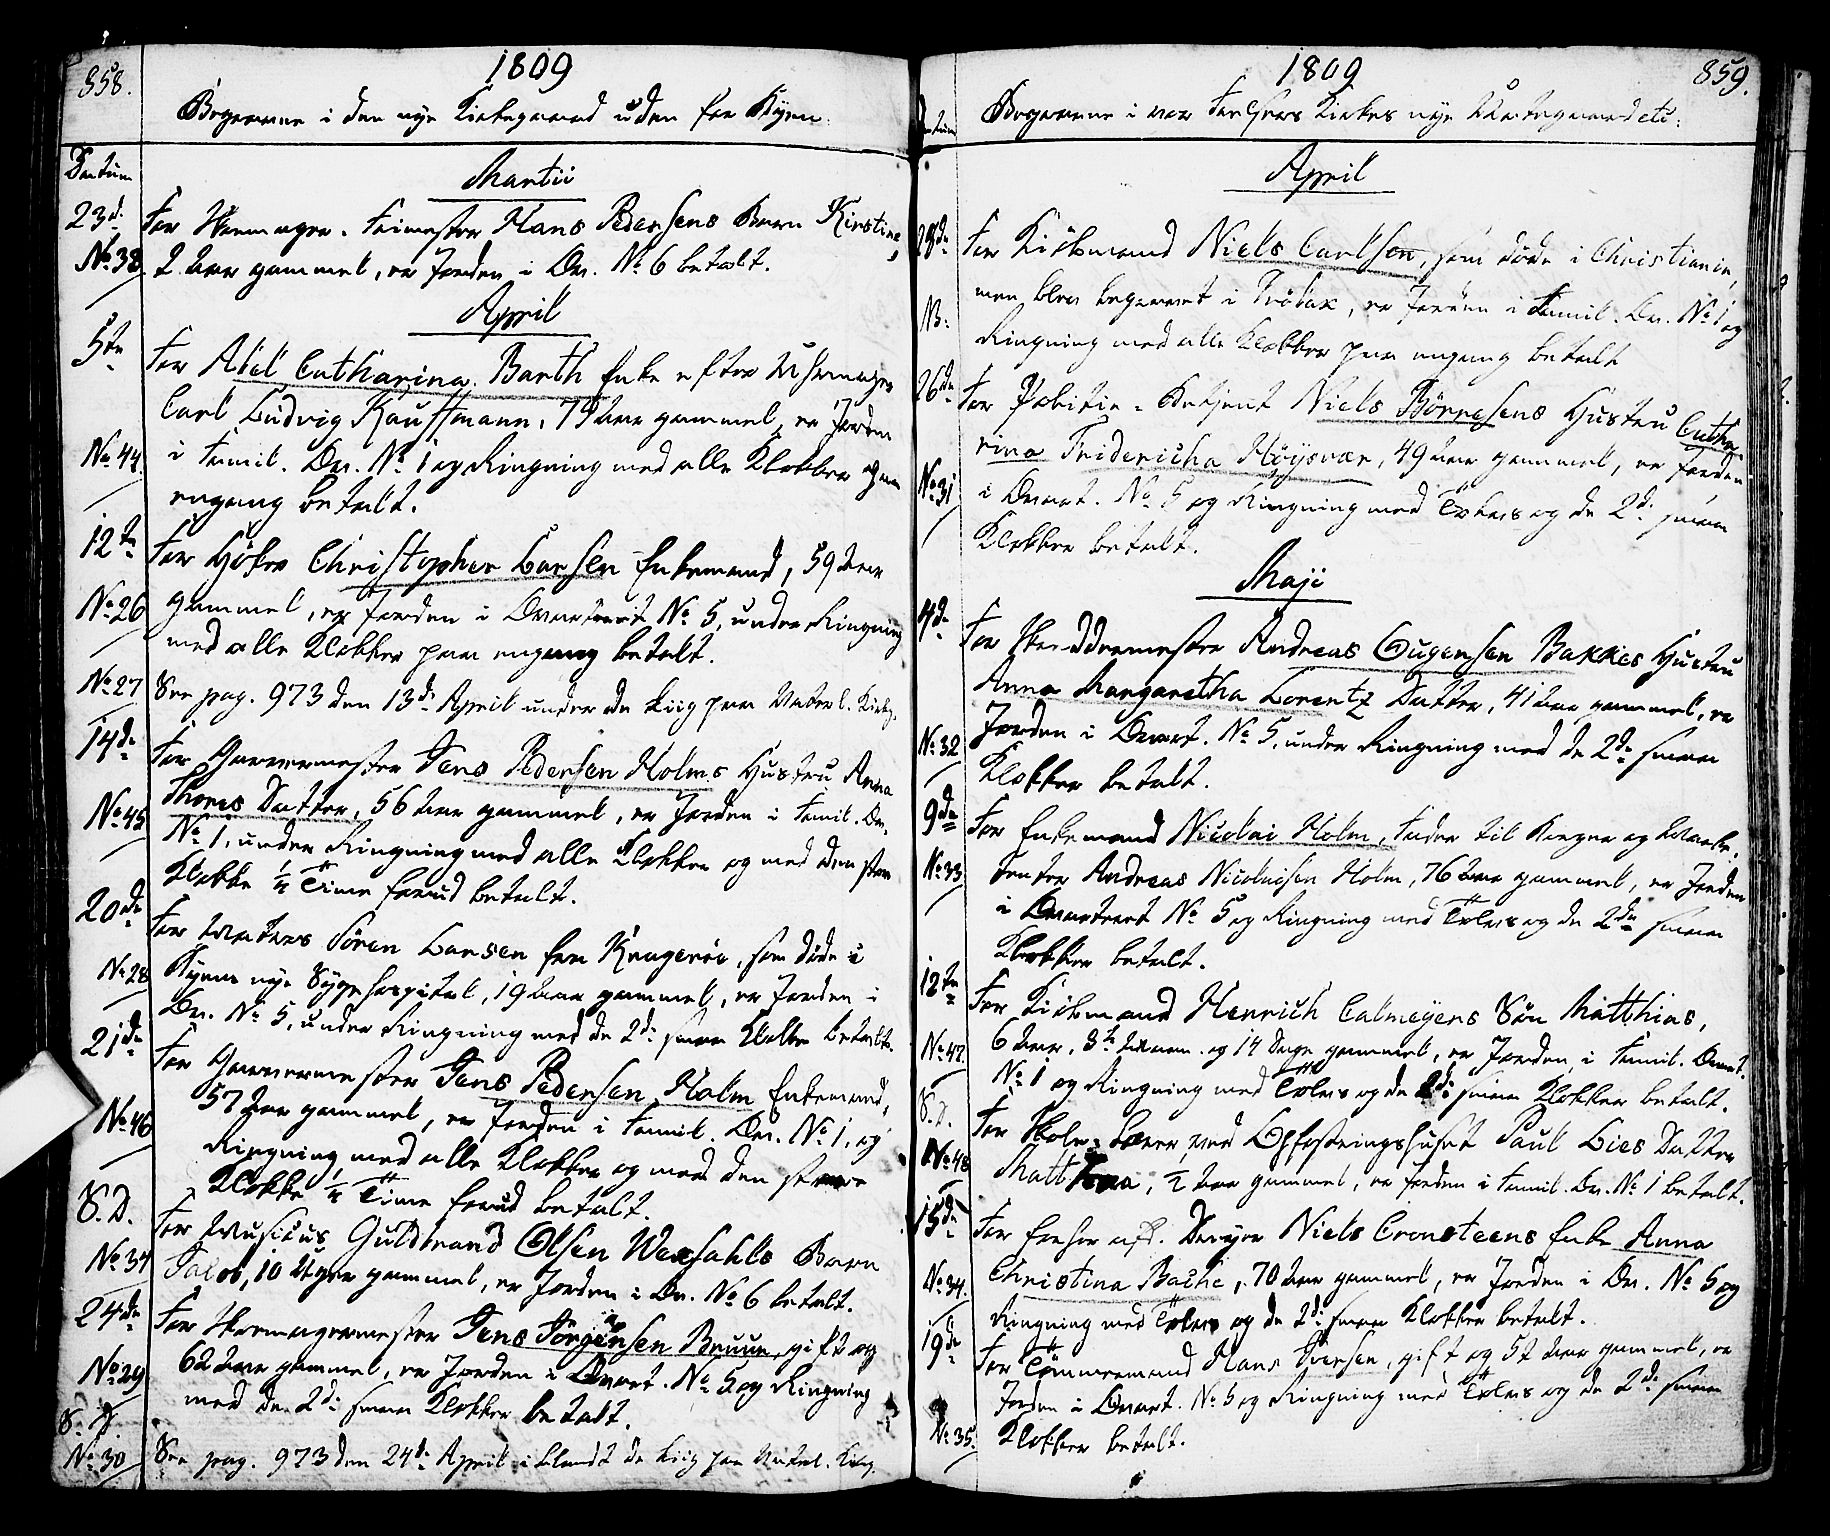 858.
1809
Begravne i den nye Kirkegaard uden for Byen.
Datum
Martii
23de
For Skomager-Svend Hans Pedersens Barn Kirstine,
No 38
2 Aar gammel, er Jorden i Qv. No 6 betalt.
April
5te
For Abel Catharina Barth Enke efter Uhrmager
Carl Ludvig Kauffmann, 79 Aar gammel, er Jorden
No 44.
i Famil. Qv. No 1 og Ringning med alle Klokker paa
engang betalt.
12te
For Høker Christopher Larsen Enkemand, 59 Aar
No 26
gammel, er Jorden i Qvarteret No 5, under Ringning
med alle Klokker paa engang betalt.
No 27
See pag. 973 den 13de April under de Liig paa Vaterl. Kirkg.
14de
For Garvermester Jens Pedersen Holms Hustru Anna
Thores Datter, 56 Aar gammel, er Jorden i Famil. Qv.
No 45
No 1, under Ringning med alle Klokker og med den store
Klokke 1/4 Time forud betalt.
20de
For Matros Søren Larsen fra Kragerøe, som døde i
No 28
Byens nye Sygehospital, 19 Aar gammel, er Jorden i
Qv. No 5, under Ringning med de 2de smaa Klokker betalt.
21de
For Garvermester Jens Pedersen Holm Enkemand,
57 Aar gammel, er Jorden i Famil. Qv. No 1, og
No 46
Ringning med alle Klokker og med den store
Klokke 1/4 Time forud betalt.
S. D.
For Musicus Guldbrand Olsen Barn
No 34
10 Uger gammel, er Jorden i Qv. No 6 betalt.
24de
For Skomagermester Jens Jørgensen Bruun, gift og
No 29
62 Aar gammel, er Jorden i Qvart. No 5 og Ringning
med de 2de smaa Klokker betalt.
S. D.
No 30
See pag. 973 den 24de April iblandt de Liig paa Vaterl. Kirkg.
859.
1809
Begravne i vor Frelsers Kirkes nye Kirkegaard etc.
Datum
April
23de
For Kiøbmand Niels Carlsen, som døde i Christiania,
NB:
men blev begravet i Drøbak, er Jorden i Famil. Qv. No 1 og
Ringning med alle Klokker paa engang betalt
26de
For Politie-Betjent Niels Børresens Hustru Catha-
rina Fridericha Høysvær, 49 Aar gammel, er Jorden
No 31
i Qvart. No 5 og Ringning med Tolvs og de 2de smaa
Klokker betalt.
Maji
4de
For Skreddermester Andreas Eugensen Bakkes Hustru
Anna Margaretha Lorentz Datter, 41 Aar gammel, er
No 32
Jorden i Qvart. No 5, under Ringning med de 2de smaa
Klokker betalt.
9de
For Enkemand Nicolai Holm, Fader til
No 33
Andreas Nicolaisen Holm, 76 Aar gammel, er Jorden
i Qvarteret No 5 og Ringning med Tolvs og de 2de smaa
Klokker betalt.
12te
For Kiøbmand Henrich Calmeyers Søn Matthias,
No 47
6 Aar, 3 1/2 Maan. og 14 Dage gammel, er Jorden i Famil. Qvart.
No 1 og Ringning med Tolvs og de 2de smaa Klokker betalt.
S. D.
For Skole-Lærer ved Opfostringshuset Paul Lies Datter
No 48
1/2 Aar gammel, er Jorden i Famil. Qv. No 1 betalt.
15de
For Niels Cronsteens Enke Anna
No 34.
Christina Bache, 70 Aar gammel, er Jorden i Qv. No 5 og
Ringning med Tolvs og de 2de smaa Klokker betalt.
19de
For Tømmermand Hans Iversen, gift og 57 Aar gammel, er
Jorden i Qvart. No 5 og Ringning med Tolvs og de 2de smaa
No 35.
Klokker betalt.